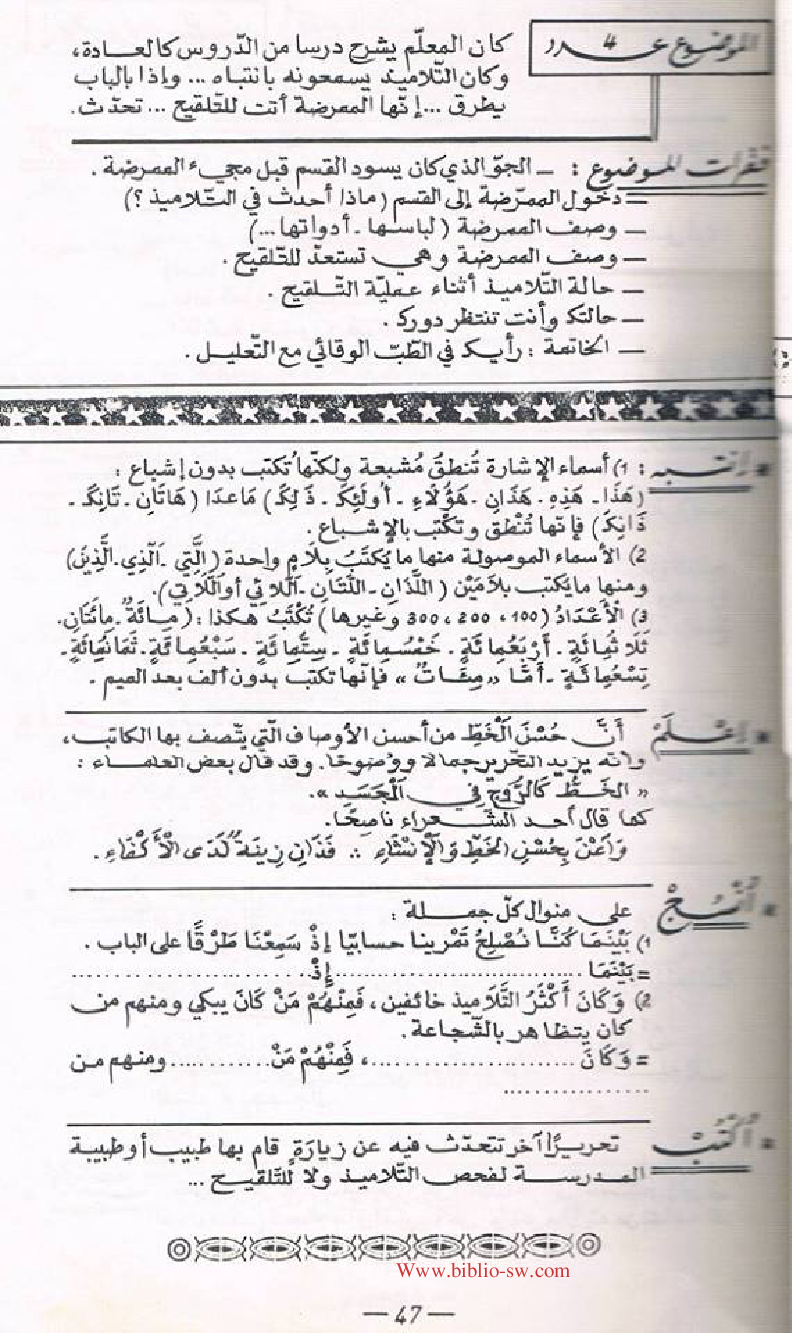 الموضوع عدد 4
كان المعلّم يشرح درسا من الدّروس كالعادة،
وكان التّلاميذ يسمعونه بانتباه ... وإذا بالباب
يطرق ...إنّها الممرضة أتت للتّلقيح ... تحدّث.
فقرات الموضوع : ـ الجوّ الذي كان يسود القسم قبل مجيء الممرضة .
= دخول الممرّضة إلى القسم (ماذا أحدث في التّلاميذ ؟)
ـ وصف الممرضة ( لباسها ـ أدواتها ...)
ـ وصف الممرضة وهي تستعدّ للتّلقيح .
ـ حالة التّلاميذ أثناء عمليّة التّلقيح .
ـ حالتك وأنت تنتظر دورك .
ـ الخاتمة : رأيك في الطّبّ الوقائي مع التّعليل .
* انتبه : 1) أسماء الإشارة تُنطقُ مُشبعة ولكنّها تكتب بدون إشباع :
(هَذَا ـ هَذِهِ ـ هَذَانِ ـ هَؤُلَاءِ ـ أُولَئِكَ ـ ذَلِكَ) مَاعدَا (هَاتَانِ ـ تَانِكَ ـ
ذَانِكَ) فإنّها تُنْطق وتكْتب بالإشباع .
2) الأسماء الموصولة منها ما يُكتَبُ بِلَامٍ واحدة (الَّتِي ـ الَّذِي ـ الَّذِينَ)
ومنها ما يُكتب بلامَيْن ( اللَّذَانِ ـ اللَّتَانِ ـ اللَّائِي أو اللَّاتِي).
3) الْأَعْدَادُ (100، 200، 300 وغيرها) تُكْتَبُ هكذا : (مِائَةٌ ـ مِائَتَانِ.
ثَلَاثُمِائَةٍ ـ أَرْبَعُمِائَةٍ ـ خَمْسُمِائَةٍ ـ سِتُّمِائَةٍ ـ سَبْعُمِائَةٍ ـ ثَمَانُمِائَةٍ ـ
تِسْعُمِائَةٍ ـ أمّا « مِئَاتٌ » فإنّها تكتب بدون ألف بعد الميم .
* اعْلَمْ أَنَّ حُسْنَ الْخَطِّ من أحسن الأوصاف الّتي يتّصف بها الكاتب،
وأنّه يزيد التّحرير جمالا ووضوحًا. وقد قال بعض العلماء :
« الخَطُّ كَالرُّوحِ فِي الْجَسَدِ ».
كما قال أحد الشّعراء ناصحًا.
وَاعْنَ بِحُسْنِ الخَطِّ وَالْإِنْشَاءِ ∴ فَذَانِ زِينَةٌ لَدَى الْأَكْفَاءِ .
* أُنْسُجْ على منوال كلّ جملة :
1) بَيْنَمَا كُنَّا نُصْلِحُ تَمْرِينا حسابيّا إذْ سَمِعْنَا طَرْقًا على الباب .
= بَيْنَمَا .................................. إِذْ ..................................
2) وَكَانَ أَكْثَرُ التَّلَامِيذ خائفين ، فَمِنْهُمْ مَنْ كَانَ يبكي ومنهم من
كان يتظاهر بالشّجاعة .
= وَكَانَ ..........................، فَمِنْهُمْ مَنْ ........... ومنهم من
..................
* اُكْتُبْ تحريرًا آخر تتحدّث فيه عن زيارة قام بها طبيب أو طبيبة
المدرسة لفحص التّلاميذ ولا للتّلقيح ...
Www.biblio-sw.com
— 47 —